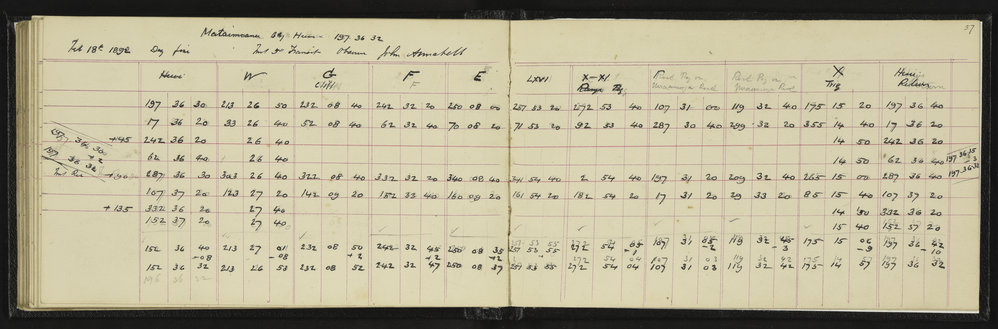 37
Mataimoana Obj. Heini 197 36 32
Feb 18th 1892 Day fine Inst 5" Transit Observer John Annabell
Heini W G F E LXVI X-XI X Heini
Cliff F Range Peg Trig Return
197 36 30 213 26 50 232 08 40 242 32 20 250 08 00 257 53 20 272 53 40 107 31 00 119 32 40 175 15 20 197 36 40
17 36 20 33 26 40 52 08 40 62 32 40 70 08 20 71 53 20 92 53 40 287 30 40 299 32 20 355 14 40 17 36 20
197 36 30 +45 242 36 20 26 40 14 50 242 36 20
+2
197 36 32 62 36 40 26 40 14 50 62 36 40 197 36 35
-3
197 36 32
+90 287 36 30 303 26 40 322 08 40 332 32 20 340 08 40 341 54 40 2 54 40 197 31 20 209 32 40 265 15 00 287 36 40
107 37 20 123 27 20 142 09 20 152 32 40 160 09 20 161 54 20 182 54 20 17 31 20 29 33 20 85 15 40 107 37 20
+135 332 36 20 27 40 14 50 332 36 20
152 37 20 27 40 15 40 152 37 20
152 36 40 213 27 01 232 08 50 242 32 45 250 08 35 257 53 55 272 54 05 107 31 05 119 32 45 175 15 06 197 36 42
-08 -08 +2 +2 +2 -1 -2 -3 -9 10
152 36 32 213 26 53 232 08 52 242 32 47 250 08 37 257 53 55 272 54 04 107 31 03 119 32 42 175 14 57 197 36 32
196 36 32